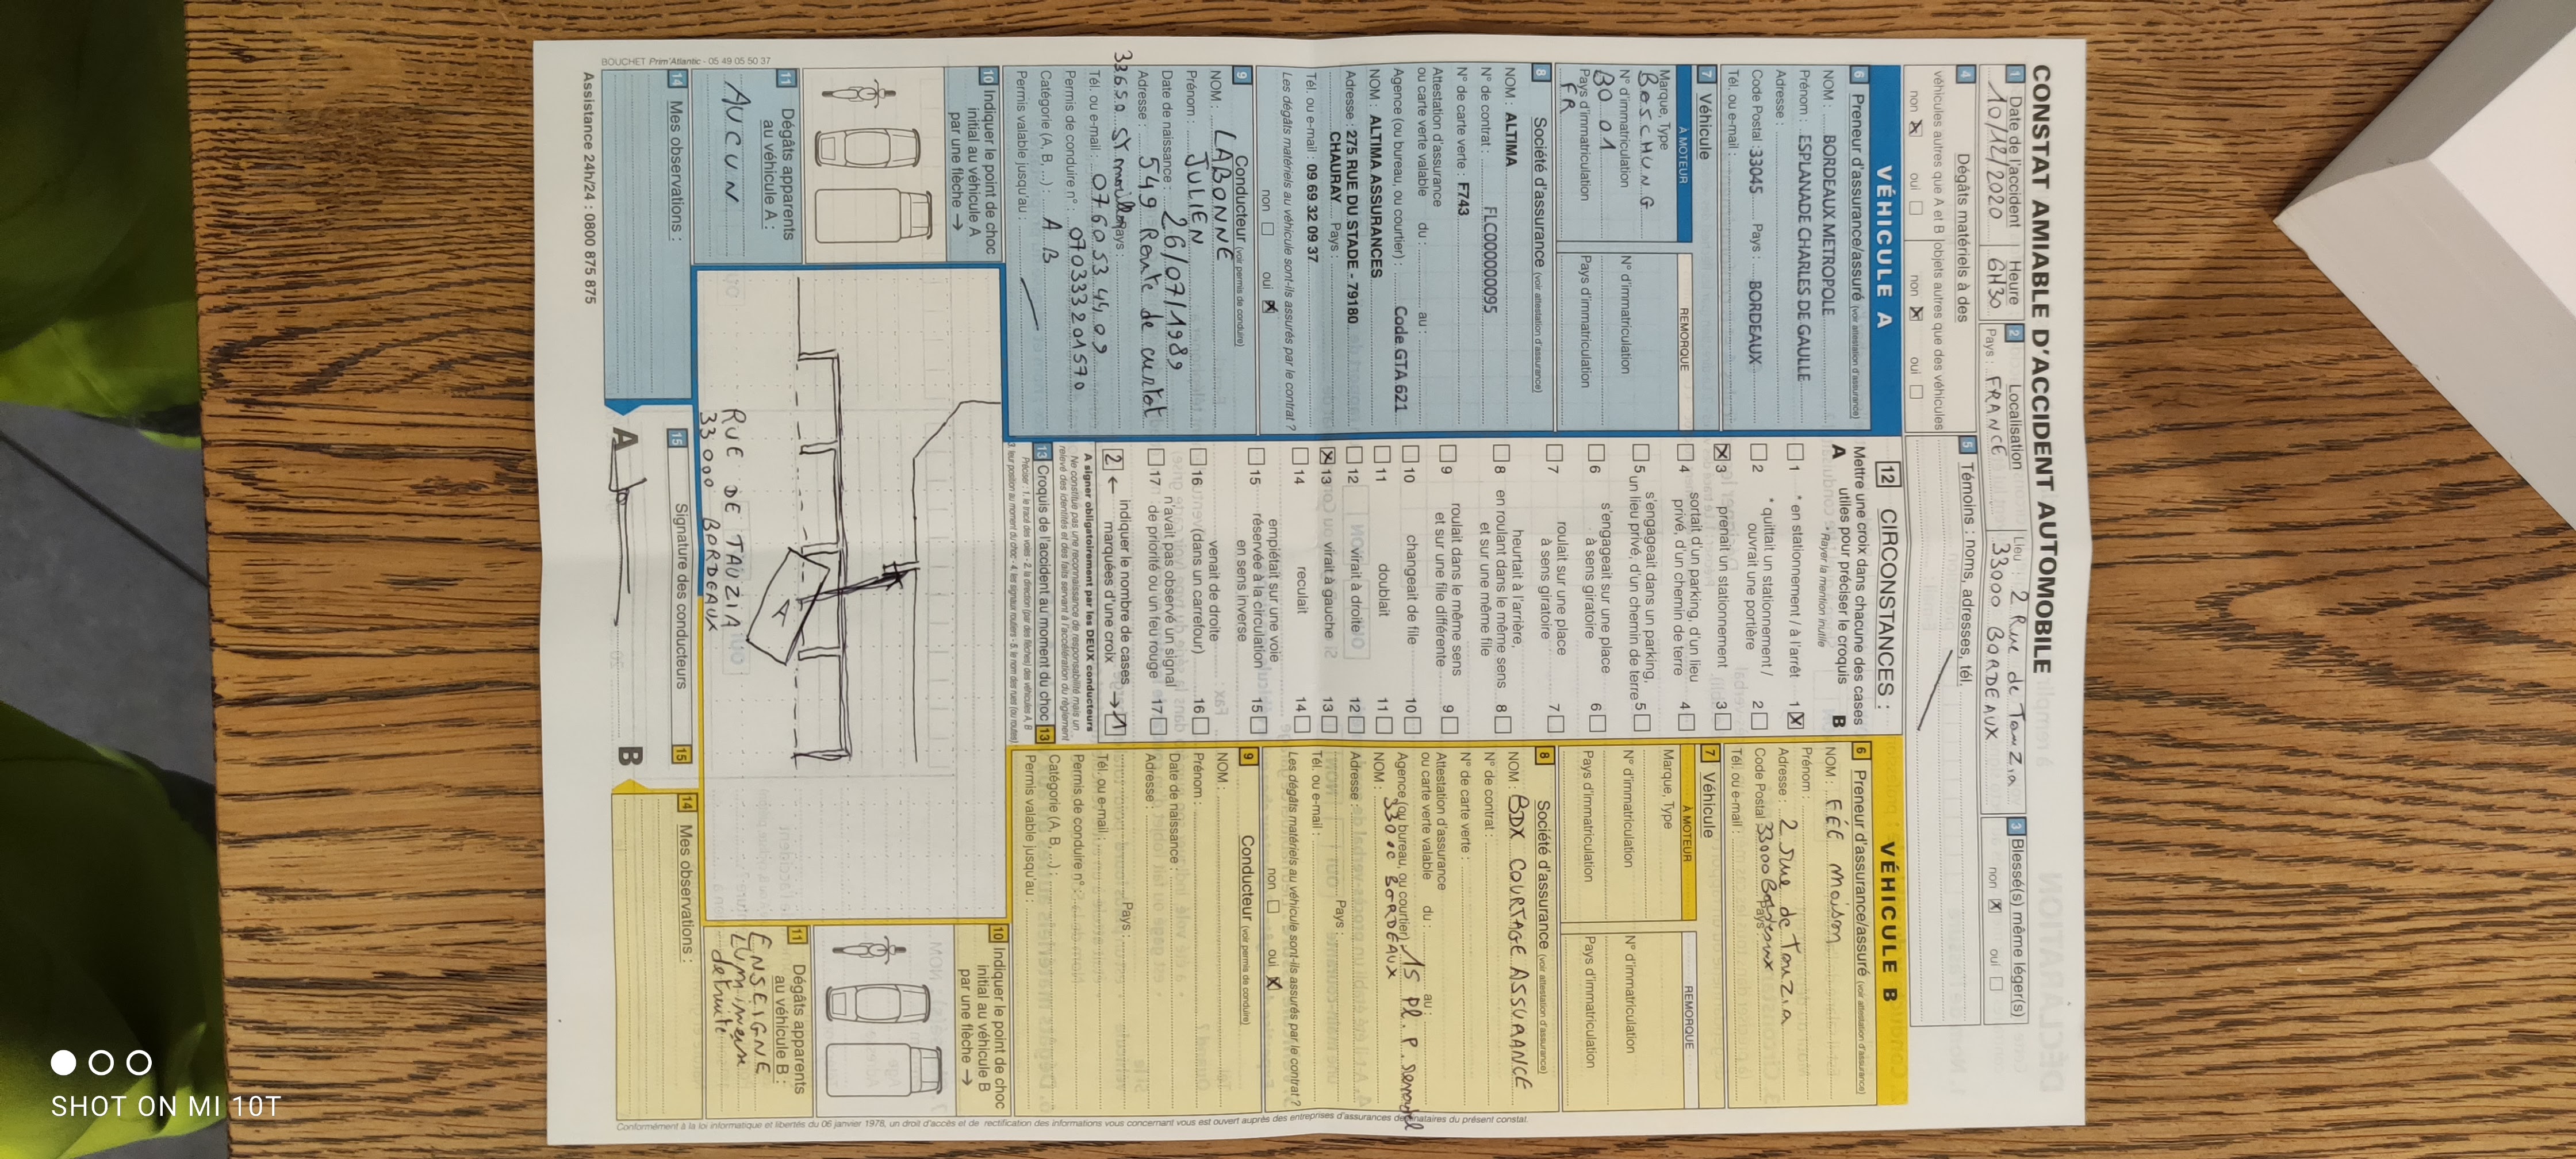 CONSTAT AMIABLE D'ACCIDENT AUTOMOBILE
1 Date de l'accident Heure
10/12/2020 6H30
2 Localisation
Pays : FRANCE
Lieu : 2 Rue de Tauzia
33000 BORDEAUX
3 Blessé(s) même léger(s)
non X oui
4 Dégâts matériels à des
véhicules autres que A et B objets autres que des véhicules
non X oui non X oui
5 Témoins : noms, adresses, tél.
VÉHICULE A
6 Preneur d'assurance/assuré (voir attestation d'assurance)
NOM : BORDEAUX METROPOLE
Prénom : ESPLANADE CHARLES DE GAULLE
Adresse :
Code Postal : 33045 Pays : BORDEAUX
Tél. ou e-mail :
7 Véhicule
À MOTEUR REMORQUE
Marque, Type
BOSCHUNG
N° d'immatriculation N° d'immatriculation
BO 01
Pays d'immatriculation Pays d'immatriculation
FR
8 Société d'assurance (voir attestation d'assurance)
NOM : ALTIMA
N° de contrat : FLC000000095
N° de carte verte : F743
Attestation d'assurance
ou carte verte valable du : au :
Agence (ou bureau, ou courtier) : Code GTA 621
NOM : ALTIMA ASSURANCES
Adresse : 275 RUE DU STADE - 79180
CHAURAY Pays :
Tél. ou e-mail : 09 69 32 09 37
Les dégâts matériels au véhicule sont-ils assurés par le contrat ?
non oui X
9 Conducteur (voir permis de conduire)
NOM : LABONNE
Prénom : JULIEN
Date de naissance : 26/07/1989
Adresse : 549 Route de
33650 Pays :
Tél. ou e-mail : 07 60 53 44 09
Permis de conduire n° : 070333201570
Catégorie (A, B, ...) : A B
Permis valable jusqu'au :
10 Indiquer le point de choc
initial au véhicule A
par une flèche →
11 Dégâts apparents
au véhicule A :
AUCUN
14 Mes observations :
12 CIRCONSTANCES :
Mettre une croix dans chacune des cases
A utiles pour préciser le croquis B
* Rayer la mention inutile
1 * en stationnement / à l'arrêt 1 X
2 * quittait un stationnement / 2
ouvrait une portière
X 3 prenait un stationnement 3
4 sortait d'un parking, d'un lieu 4
privé, d'un chemin de terre
s'engageait dans un parking,
5 un lieu privé, d'un chemin de terre 5
6 s'engageait sur une place 6
à sens giratoire
7 roulait sur une place 7
à sens giratoire
heurtait à l'arrière,
8 en roulant dans le même sens 8
et sur une même file
9 roulait dans le même sens 9
et sur une file différente
10 changeait de file 10
11 doublait 11
12 virait à droite 12
X 13 virait à gauche 13
14 reculait 14
15 empiétait sur une voie 15
réservée à la circulation
en sens inverse
16 venait de droite 16
(dans un carrefour)
17 n'avait pas observé un signal 17
de priorité ou un feu rouge
2 ← indiquer le nombre de cases → 1
marquées d'une croix
A signer obligatoirement par les DEUX conducteurs
Ne constitue pas une reconnaissance de responsabilité mais un
relevé des identités et des faits servant à l'accélération du règlement
13 Croquis de l'accident au moment du choc 13
Préciser : 1. le tracé des voies - 2. la direction (par des flèches) des véhicules A, B
3. leur position au moment du choc - 4. les signaux routiers - 5. le nom des rues (ou routes)
A
RUE DE TAUZIA
33000 BORDEAUX
15 Signature des conducteurs 15
A B
VÉHICULE B
6 Preneur d'assurance/assuré (voir attestation d'assurance)
NOM : FÉE maison
Prénom :
Adresse : 2 rue de Tauzia
Code Postal : 33000 Bordeaux Pays :
Tél. ou e-mail :
7 Véhicule
À MOTEUR REMORQUE
Marque, Type
N° d'immatriculation N° d'immatriculation
Pays d'immatriculation Pays d'immatriculation
8 Société d'assurance (voir attestation d'assurance)
NOM : BDX COURTAGE ASSURANCE
N° de contrat :
N° de carte verte :
Attestation d'assurance
ou carte verte valable du : au :
Agence (ou bureau, ou courtier) 15 Pl. P.
NOM : 33000 BORDEAUX
Adresse :
Pays :
Tél. ou e-mail :
Les dégâts matériels au véhicule sont-ils assurés par le contrat ?
non oui X
9 Conducteur (voir permis de conduire)
NOM :
Prénom :
Date de naissance :
Adresse :
Pays :
Tél. ou e-mail :
Permis de conduire n° :
Catégorie (A, B, ...) :
Permis valable jusqu'au :
10 Indiquer le point de choc
initial au véhicule B
par une flèche →
11 Dégâts apparents
au véhicule B :
ENSEIGNE
Lumineuse
detruite
14 Mes observations :
BOUCHET Prim'Atlantic - 05 49 05 50 37
Assistance 24h/24 : 0800 875 875
Conformément à la loi informatique et libertés du 06 janvier 1978, un droit d'accès et de rectification des informations vous concernant vous est ouvert auprès des entreprises d'assurances destinataires du présent constat.
SHOT ON MI 10T